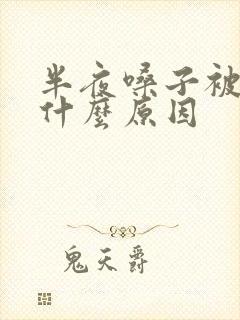 半夜嗓子被
什麼原因
鬼天爵